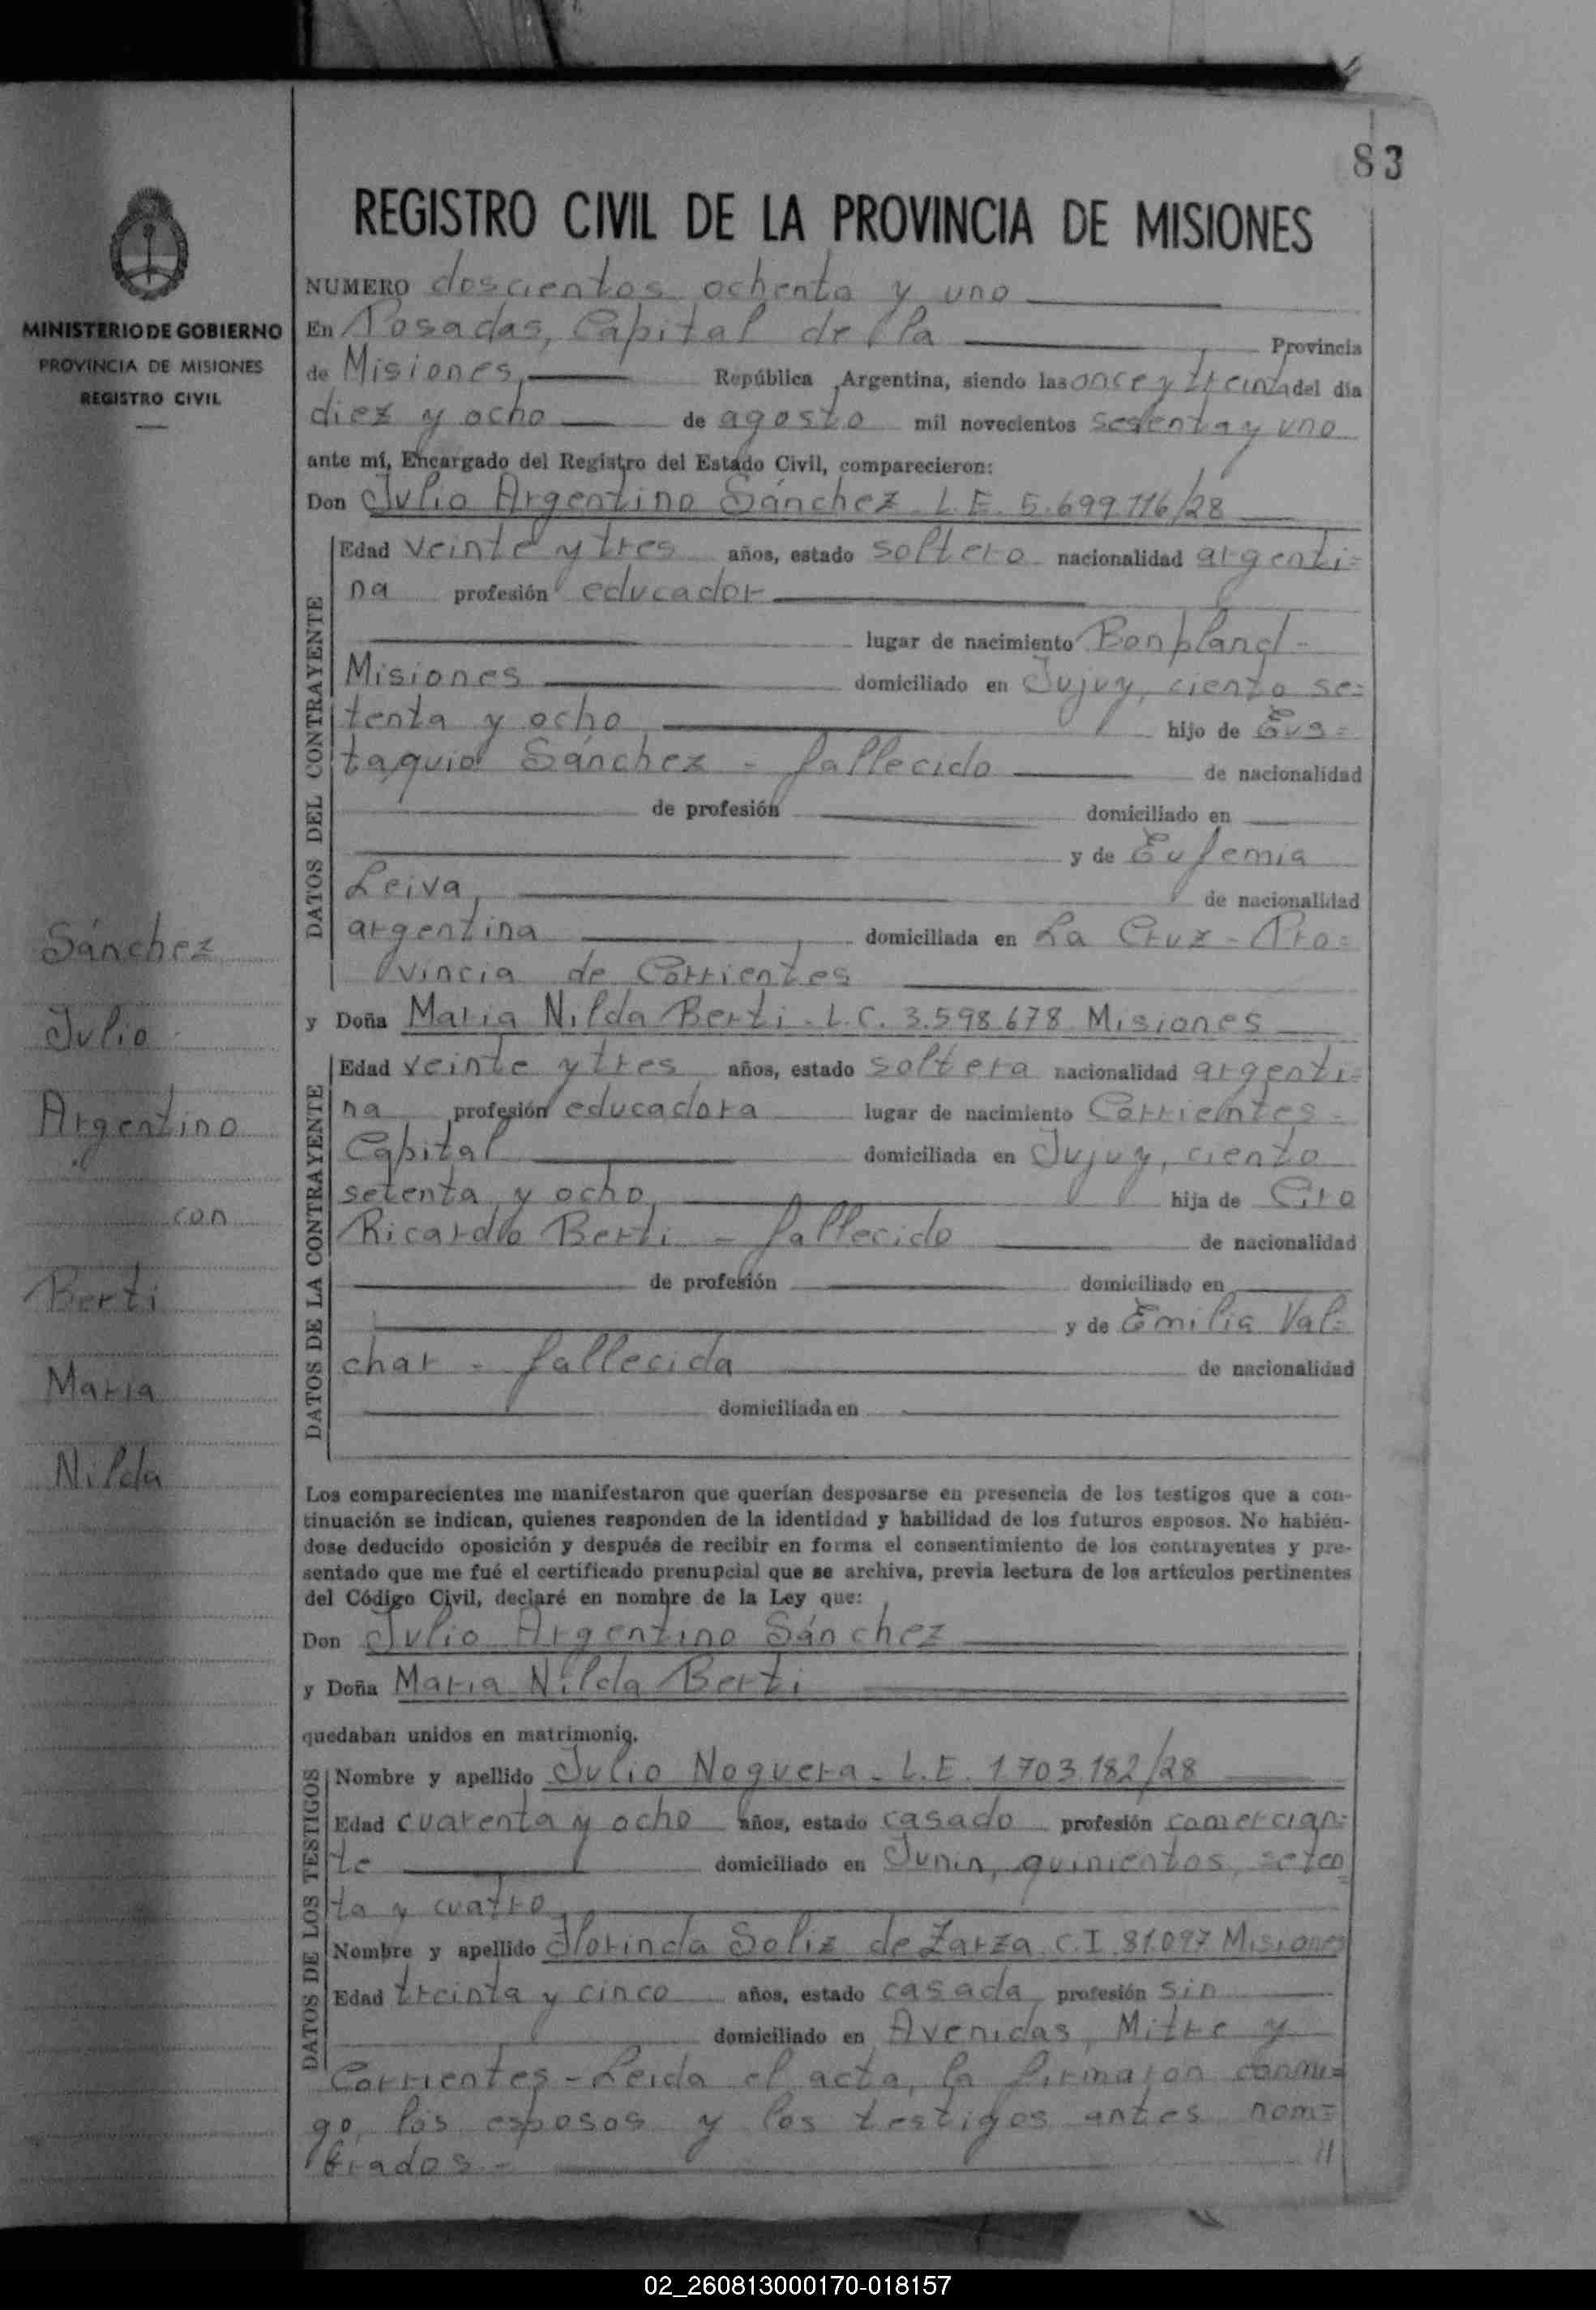 83
REGISTRO CIVIL DE LA PROVINCIA DE MISIONES
MINISTERIO DE GOBIERNO
PROVINCIA DE MISIONES
REGISTRO CIVIL
NUMERO doscientos ochenta y uno
En Posadas, Capital de la Provincia
de Misiones, República Argentina, siendo las once y treinta del día
diez y ocho de agosto mil novecientos sesenta y uno
ante mí, Encargado del Registro del Estado Civil, comparecieron:
Don Julio Argentino Sánchez L.E. 5.699.116/28
DATOS DEL CONTRAYENTE
Edad veinte y tres años, estado soltero nacionalidad argenti=
na profesión educador
lugar de nacimiento Bonpland-
Misiones domiciliado en Jujuy, ciento se=
tenta y ocho hijo de Eus=
taquio Sánchez - fallecido de nacionalidad
de profesión domiciliado en
y de Eufemia
Leiva, de nacionalidad
argentina domiciliada en La Cruz - Pro=
vincia de Corrientes
y Doña Maria Nilda Berti - L.C. 3.598.678 Misiones
DATOS DE LA CONTRAYENTE
Edad veinte y tres años, estado soltera nacionalidad argenti=
na profesión educadora lugar de nacimiento Corrientes-
Capital domiciliada en Jujuy, ciento
setenta y ocho, hija de Ciro
Ricardo Berti - fallecido de nacionalidad
de profesión domiciliado en
y de Emilia Val=
char - fallecida de nacionalidad
domiciliada en
Sánchez
Julio
Argentino
con
Berti
Maria
Nilda
Los comparecientes me manifestaron que querían desposarse en presencia de los testigos que a con-
tinuación se indican, quienes responden de la identidad y habilidad de los futuros esposos. No habién-
dose deducido oposición y después de recibir en forma el consentimiento de los contrayentes y pre-
sentado que me fué el certificado prenupcial que se archiva, previa lectura de los artículos pertinentes
del Código Civil, declaré en nombre de la Ley que:
Don Julio Argentino Sánchez
y Doña Maria Nilda Berti
quedaban unidos en matrimonio.
DATOS DE LOS TESTIGOS
Nombre y apellido Julio Noguera - L.E. 1703.182/28
Edad cuarenta y ocho años, estado casado profesión comercian=
te domiciliado en Junin, quinientos seten
ta y cuatro
Nombre y apellido Florinda Soliz de Zarza C.I. 81.097 Misiones
Edad treinta y cinco años, estado casada profesión sin
domiciliado en Avenidas, Mitre y
Corrientes - Leida el acta, la firmaron conmi=
go, los esposos y los testigos antes nom=
brados.- //
02_260813000170-018157